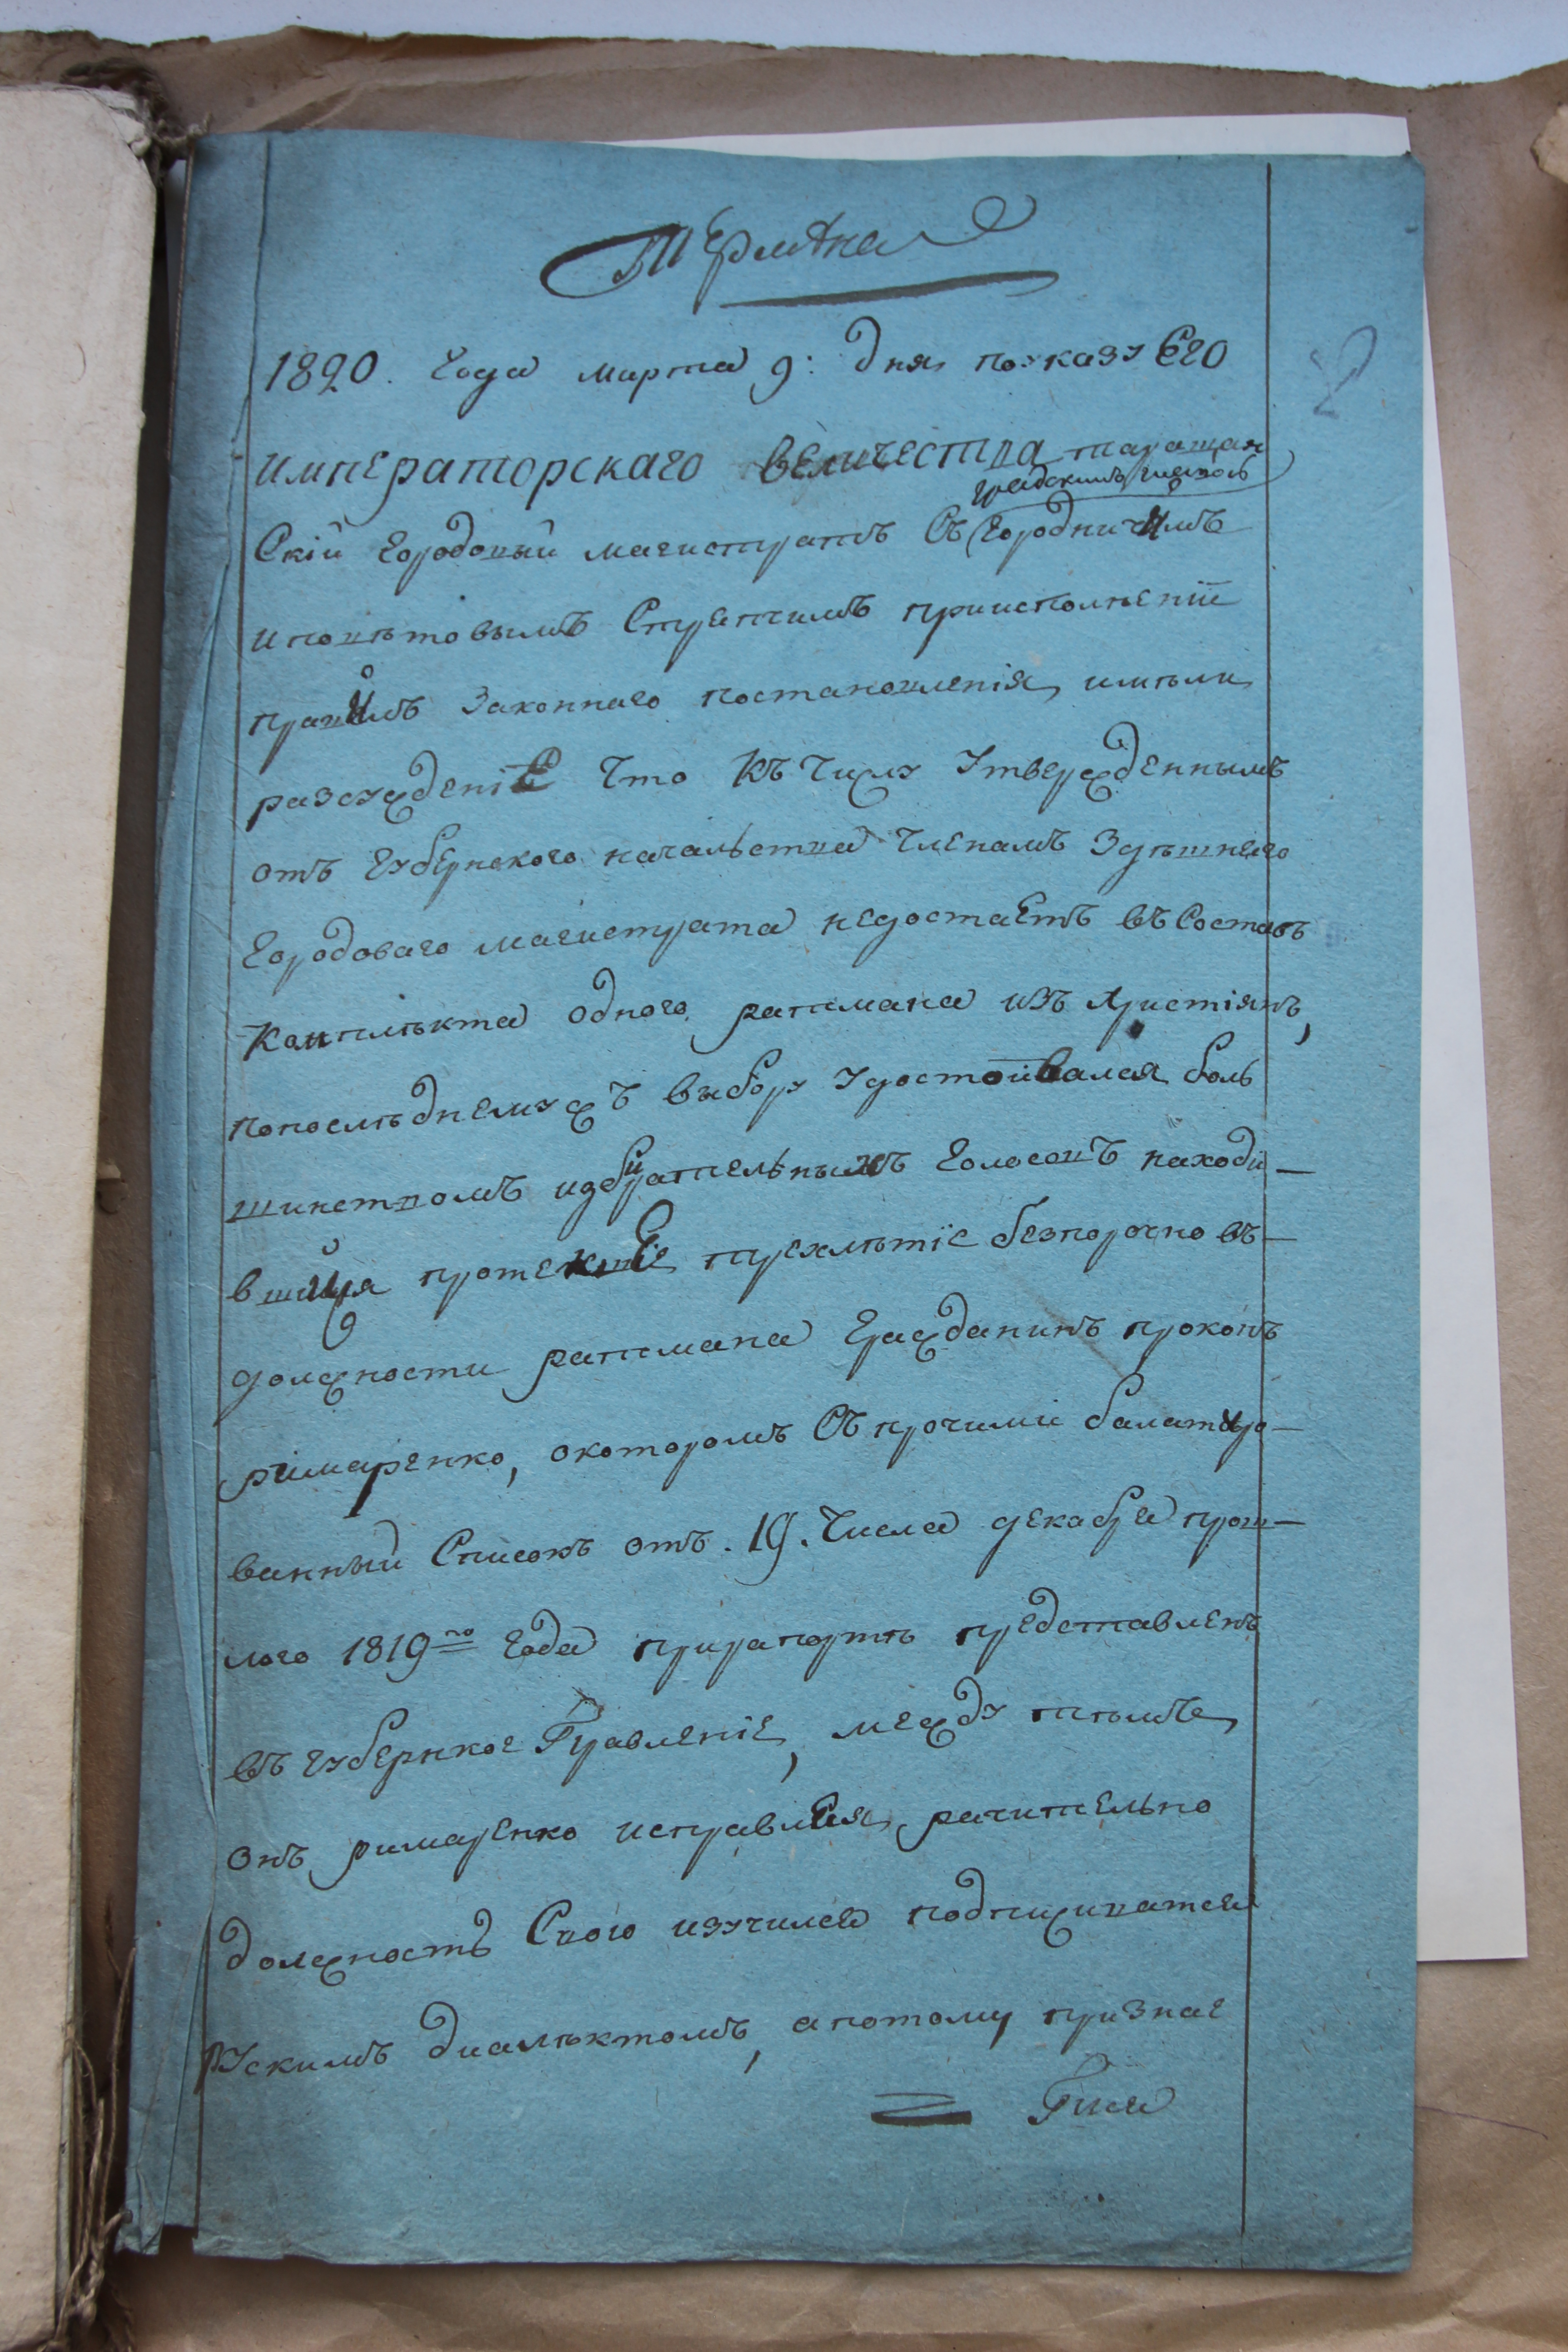 1820. Года марта 9: дня поуказу Его
императорскаго величества таращан
градскимъ главою
Скій городовый магистратъ Съ городничимъ
иповѣтовымъ Стряпчимъ приисполненіи
правилъ Законнаго постановленія, имѣли
разсужденіе Что Къ числу Утвержденнымъ
отъ губернского начальства членамъ Здѣшнего
городоваго магистрата недостаетъ въ Составъ
Комплѣкта одного ратмана изъ христіянъ,
попослѣднемужъ выбору удостоивался боль
шинствомъ избирательныхъ голосовъ находи—
вшийся протекшие трехлѣтіе безпорочно въ—
должности ратмана гражданинъ прокопъ
римаренко, окоторомъ Съ прочими балатиро—
ванный Списокъ отъ. 19. Числа декабря прош—
лого 1819го года прирапортѣ представленъ
въ губернкое Правленіе, между тѣмъ
онъ римаренко исправляя рачительно
должность Свою изучился подписиватся
рускимъ диалѣктомъ, апотому признае